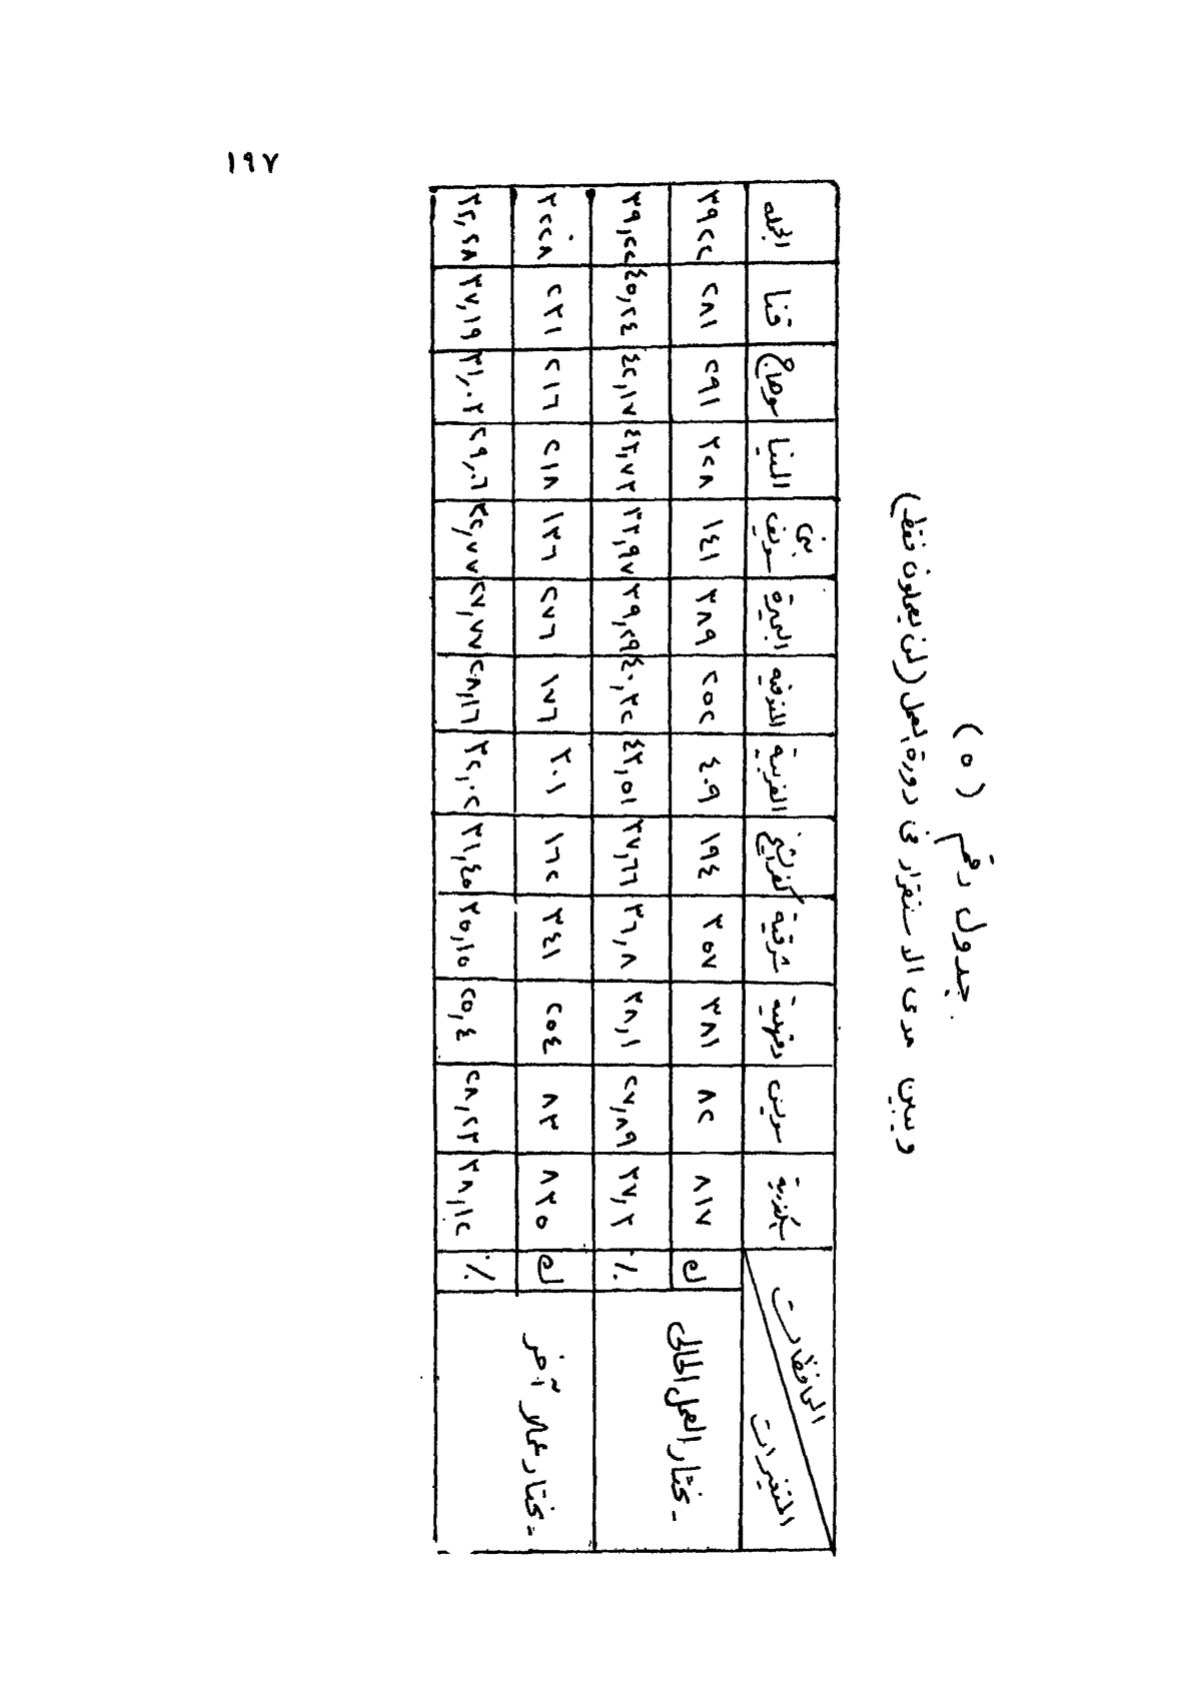 ١٩٧
جدول رقم (٥)
ويبين مدى الاستقرار فى دورة العمل (لمن يعملون فقط)
المحافظات
المتغيرات
سكندرية سويس دقهلية شرقية كفر الشيخ الغربية المنوفيه البحيرة بنى سويف المنيا سوهاج قنا الجمله
- يختار العمل الحالى
ك ٨١٧ ٨٢ ٣٨١ ٣٥٧ ١٩٤ ٤٠٩ ٢٥٢ ٣٨٩ ١٤١ ٣٢٨ ٢٩١ ٢٨١ ٣٩٢٢
٪ ٣٧,٣ ٢٧,٨٩ ٣٨,١ ٣٦,٨ ٣٧,٦٦ ٤٣,٥١ ٤٠,٣٢ ٣٩,٢٩ ٣٣,٩٧ ٤٣,٧٣ ٤٢,١٧ ٤٥,٢٤ ٣٩,٢٢
- يختار عملا آخر
ك ٨٣٥ ٨٣ ٢٥٤ ٣٤١ ١٦٢ ٣٠١ ١٧٦ ٢٧٦ ١٣٦ ٢١٨ ٢١٦ ٢٣١ ٣٢٢٨
٪ ٣٨,١٢ ٢٨,٢٣ ٢٥,٤ ٣٥,١٥ ٣١,٤٥ ٣٢,٠٢ ٢٨,١٦ ٢٧,٧٧ ٣٢,٧٧ ٢٩,٠٦ ٣١,٠٣ ٣٧,١٩ ٣٢,٢٨